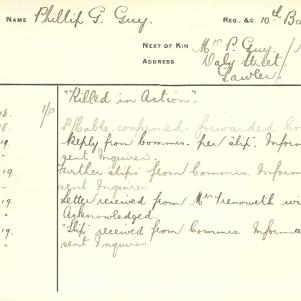 NAME Phillip G. Guy. REG., &C. 10th Ba
NEXT OF KIN Mrs P. Guy.
ADDRESS Daly Street,
Gawler.
"Killed in Action".
1/P
Cable confirmed forwarded Co
19. Reply from Commrs. per slip. Inform
sent Inquirer
19. Further slip from Commrs. Inform
sent Inquirer
19. Letter received from Mrs Trenoweth wi
" Acknowledged.
19. "Slip" received from Commrs. Informa
" sent Inquirer